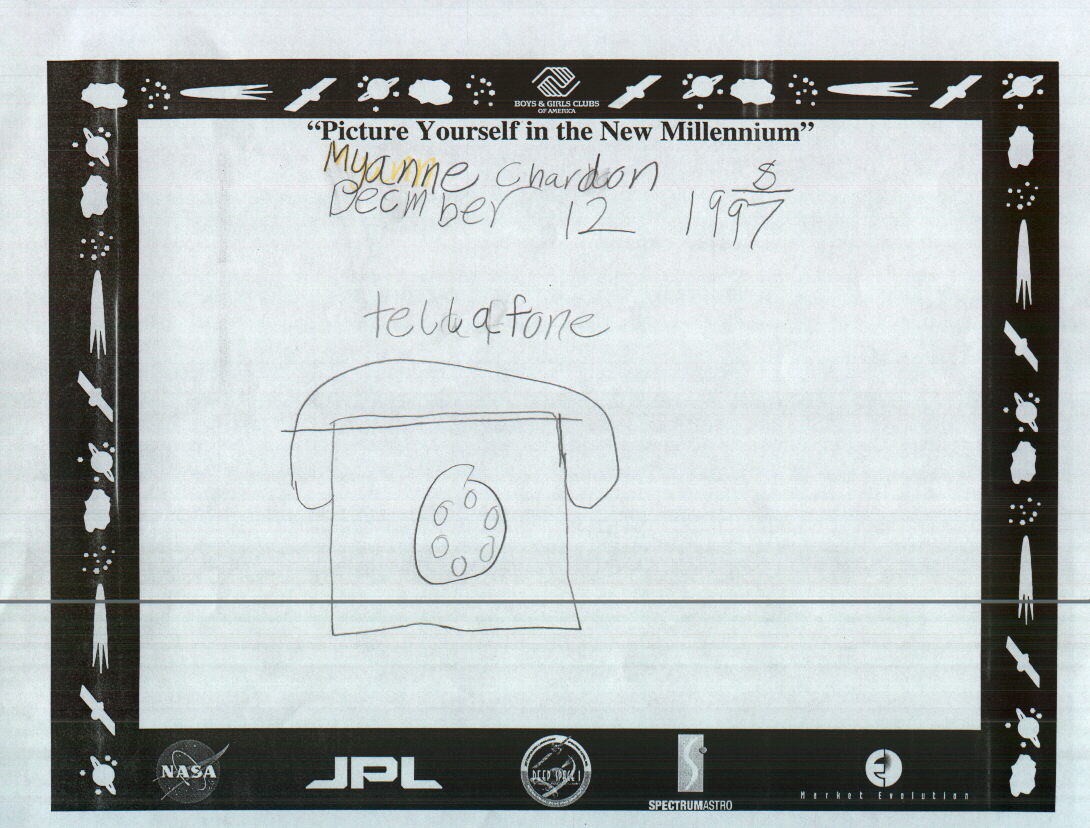 BOYS & GIRLS CLUBS
OF AMERICA
“Picture Yourself in the New Millennium”
Myanne Chardon 8
Decmber 12 1997
tellafone
NASA
JPL
DEEP SPACE 1
SPECTRUMASTRO
Market Evolution